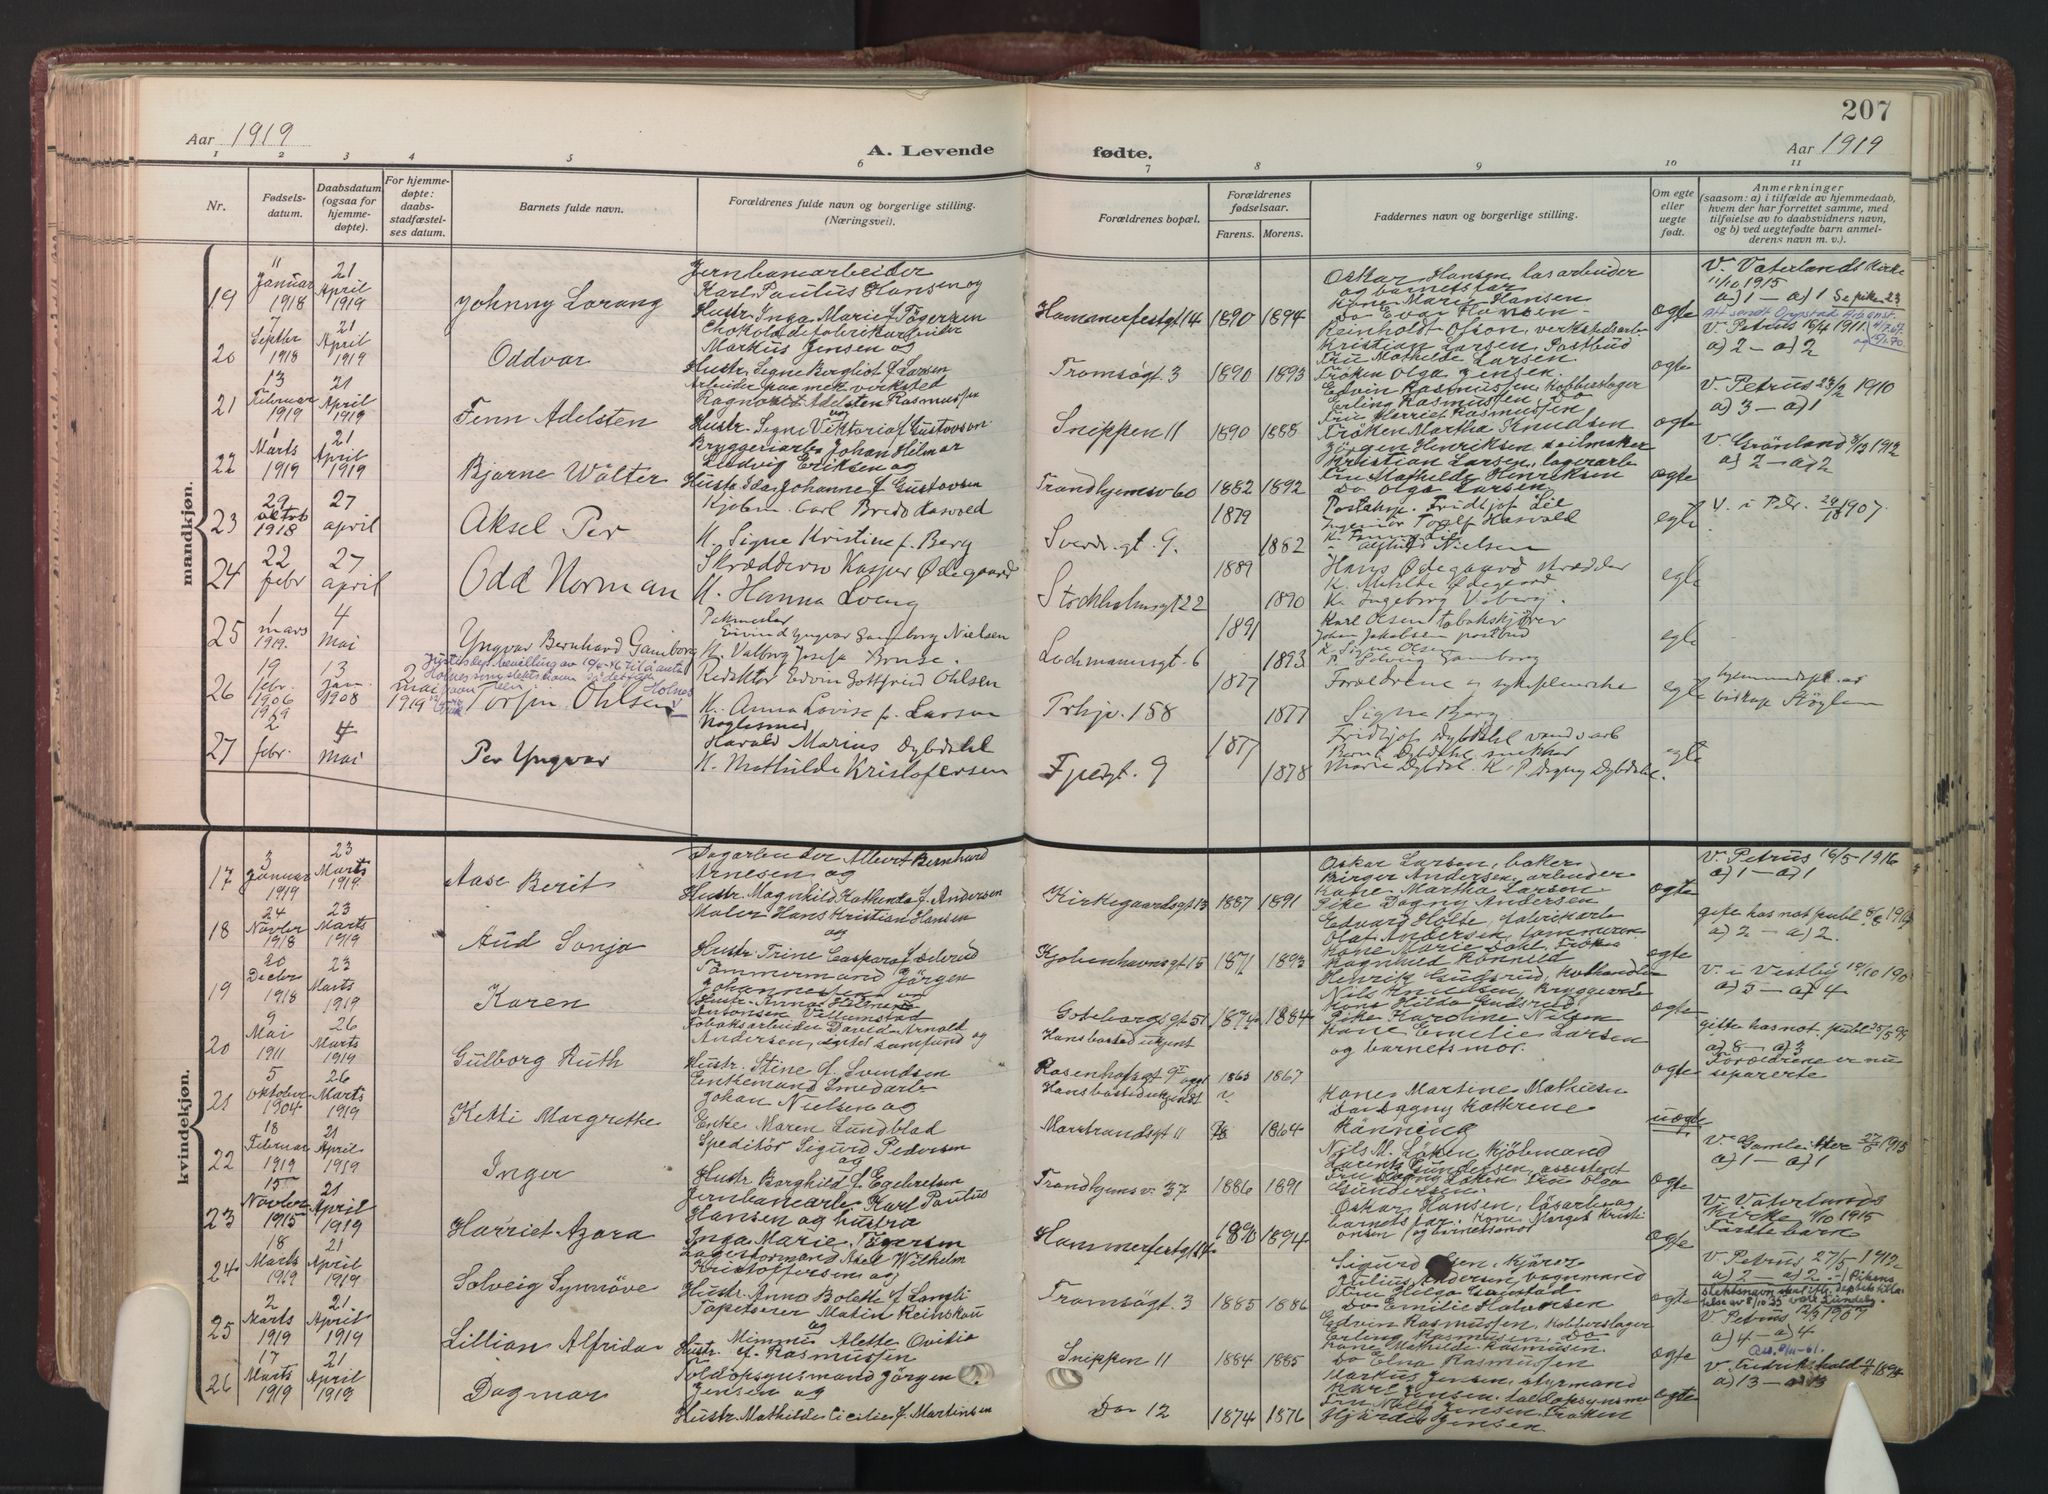 207
Aar 1919
A. Levende
fødte.
Aar 1919
1 2 3 4 5 6 7 8 9 10 11
Nr.
Fødselsdatum.
Daabsdatum (ogsaa for hjemmedøpte).
For hjemmedøpte: daabsstadfæstelses datum.
Barnets fulde navn.
Forældrenes fulde navn og borgerlige stilling. (Næringsvei).
Forældrenes bopæl.
Forældrenes fødselsaar.
Farens. Morens.
Faddernes navn og borgerlige stilling.
Om egte eller uegte født.
Anmerkninger
(saasom: a) i tilfælde av hjemmedaab, hvem der har forrettet samme, med tilføielse av to daabsvidners navn, og b) ved uegtefødte barn anmelderens navn m. v.).
mandkjøn.
19
11 Januar 1918
21 April 1919
Johnny Lorang
Jernbanearbeider
Karl Paulus Hansen og
Hustr. Inga Marie f. Tögersen
Hammerfestgt 14
1890 1894
Oskar Hansen løsarbeider
og barnets far
Kone Marie Hansen
ægte
V. Vaterlands Kirke
11/10 1915
a) 1 — a) 1
20
7 Septbr 1918
21 April 1919
Oddvar
Chokoladefabrikarbeider
Markus Jensen og
Hustr. Signe Bergliot f. Larsen
Tromsögt. 3
1890 1893
Reinholdt Olson, verkstedsarb.
Kristian Larsen Postbud
Fru Mathilde Larsen
Fröken Olga Jensen
ægte
V. Petrus 16/4 1911
a) 2 — a) 2
21
13 Februar 1919
21 April 1919
Fenn Adelsten
Arbeider paa mek. virksted
Ragnvald Adelsten Rasmussen
og
Hustr. Signe Viktoria f. Gustavson
Snippen 11
1890 1888
Edvin Rasmussen, Kobberslager
Erling Rasmussen, Do
Fru Herriet Rasmussen
Fröken Martha Knudsen
ægte
V. Petrus 23/2 1910
a) 3 — a) 1
22
1 Marts 1919
21 April 1919
Bjarne Walter
Bryggeriarb. Johan Hilmar
Ludvig Eriksen og
Hustr. Ida Johanne f. Gustavsen
Trondhjemsv 60
1882 1892
Jörgen Henriksen seilmaker
Kristian Larsen, lagerarb.
Fru Mathilde Henriksen
Do Olga Larsen
ægte
V. Grönland 8/3 1912
a) 2 — a) 2
23
29 oktbr 1918
27 april
Aksel Per
Kjøbm. Carl Bredo Hasvold
K. Signe Kristine f. Berg
Sverdr.gt 9.
1879 1882
Posteksp. Fridtjof Lie
Ingeniør Toralf Hasvold
egte
V. i Petr. 29/10 1907
24
22 febr
27 april
Odd Norman
Skræddersv Kasper Ødegaard
K. Hanna Lveng
Stockholmsgt 22
1889 1890
Hans Ødegaard skrædder
K. Matilde Ødegaard
K. Ingeborg Viberg
egte
25
1 mars 1919.
4 Mai
Yngvar Bernhard Gamborg
Eivind Yngvar Gamborg Nielsen
K. Valborg Josefa Bruse.
Lochmannsgt. 6
1891 1893
Karl Olsen tobakskjører
Johan Jakobsen postbud
K. Signe Olsen
P. Solveig Gamborg
egte
26
19 febr. 1906
13 jan. 1908
2 mai 1919
Torfin Ohlsen
Redaktør Edvin Gottfried Ohlsen
K. Anna Lovise f. Larsen
Trhjv. 158
1877 1877
Forældrene og sykepleierske
Signe Berg
egte
hjemmedøpt av
biskop Støylen
27
1919 2 febr.
4 Mai
Per Yngvar
Harald Marius Dybdahl
K. Mathilde Kristofersen
1877 1878
Fridtjof Dybdahl vandv. arb
Marie Dybdal. K. P. Dagny Dybdahl.
egte
kvindekjøn.
17
3 Januar 1919
23 Marts 1919
Aase Berit
Dagarbeider Albert Bernhard
Arnesen og
Hustr. Magnhild Kathinda f. Andersen
Kirkegaardsgt 13
1887 1891
Oskar Larsen, baker
Birger Andersen, arbeider
Kone Martha Larsen
Pike Dagny Andersen
ægte
V. Petrus 16/5 1916
a) 1 — a) 1
18
24 Novber 1918
23 Marts 1919
Aud Sonja
Maler Hans Kristian Hansen
og
Hustr. Trine Caspara f. Sölerud
Kjöbenhavnsgt 15
1871 1893
Edvard Holte, fabrikarb.
Olaf Andersen, tömmerm.
Kone Marie Dahl, Fröken
Ragnhild Rönneid
ægte
gifte hos not publ
a) 2 — a) 2.
19
20 Decbr 1918
23 Marts 1919
Karen
Tömmermand Jörgen
Johannessen og
Hustr. Anna Hilmara
Antonsen Villumstad
Goteborgsgt 51
1874 1884
Henrik Gudsrud, Kulhandler
Nils Knudsen, Bryggearb.
Kone Hilda Gudsrud
Pike Karoline Nilsen
ægte
V. i Vestby 19/10 190
a) 5 — a) 4
20
9 Mai 1911
26 Marts 1919
Gulborg Ruth
Tobaksarbeider David Arnold
Andersen, intet samfund og
Hustr. Stine f. Svendsen
Hans bosted ukjent
Rosenhofsgt 9
1865 1867
Kone Emilie Larsen
og barnets mor.
ægte
gifte hos not publ 25/5 99
a) 8 — a) 3
Forældrene er nu
separerte
21
5 Oktober 1904
26 Marts 1919
Ketti Margrethe
Enkemand Smedarb.
Johan Nielsen og
Enke Maren Lundblad
Hans bosted ukjendt
Markrandsgt 11
1864
Kone Martine Mathiesen
Do Dagny Kathrene
Rönning
uægte
22
18 Februar 1919
21 April 1919
Inger
Speditör Sigurd Pedersen
og
Hustr. Borghild f. Egebretsen
Trondhjemsv. 37
1886 1891
Nils M. Löken Kjöbmand
Laurents Gundersen, assistent
Fru Dagny Löken Fru Olga
Gundersen
ægte
V. Gamle Aker 27/6 1913
a) 1 — a) 1
23
15 Novber 1915
21 April 1919
Harriet Azora
Jernbanearb. Karl Paulus
Hansen og hustru
Inga Marie f. Tögersen
Hammerfestgt 14
1890 1894
Oskar Hansen, lösarb. og
barnets far. Kone Margit Kristi
ansen (og barnets mor)
ægte
V. Vaterlands
Kirke 11/10 1915
Födte barn
24
18 Marts 1919
21 April 1919
Solveig Synnöve
Lagerformand Axel Wilhelm
Kristoffersen og
Hustr. Anna Bolette f. Langli
Tromsögt. 3
1885 1886
Sigurd Olsen, Kjörer
Julius Andersen, vognmand
Fru Helga Gaustad
Do Emilie Halvorsen
ægte
V. Petrus 27/5 1912
a) 2 — a) 2
25
2 Marts 1919
21 April 1919
Lillian Alfrida
Tapetserer Matin Reinskau
og
Mimmi Alette Ovitia
Hustr. f. Rasmussen
Snippen 11
1884 1885
Edvin Rasmussen, Kobberslager
Erling Rasmussen, Do
Kone Mathilde Rasmussen
Do Elna Rasmussen
ægte
V. Petrus 12/3 1907
a) 4 — a) 4
26
17 Marts 1919
21 April 1919
Dagmar
Toldopsynsmand Jörgen
Jensen og
Hustr. Mathilde Cicilie f. Martinsen
Do 12
1874 1876
Markus Jensen, styrmand
Karl Jensen, toldopsynsm.
Fru Nelly Jensen Fröken
Hjördis Jensen
ægte
V. Fredrikshald 1894
a) 13 — a) 13